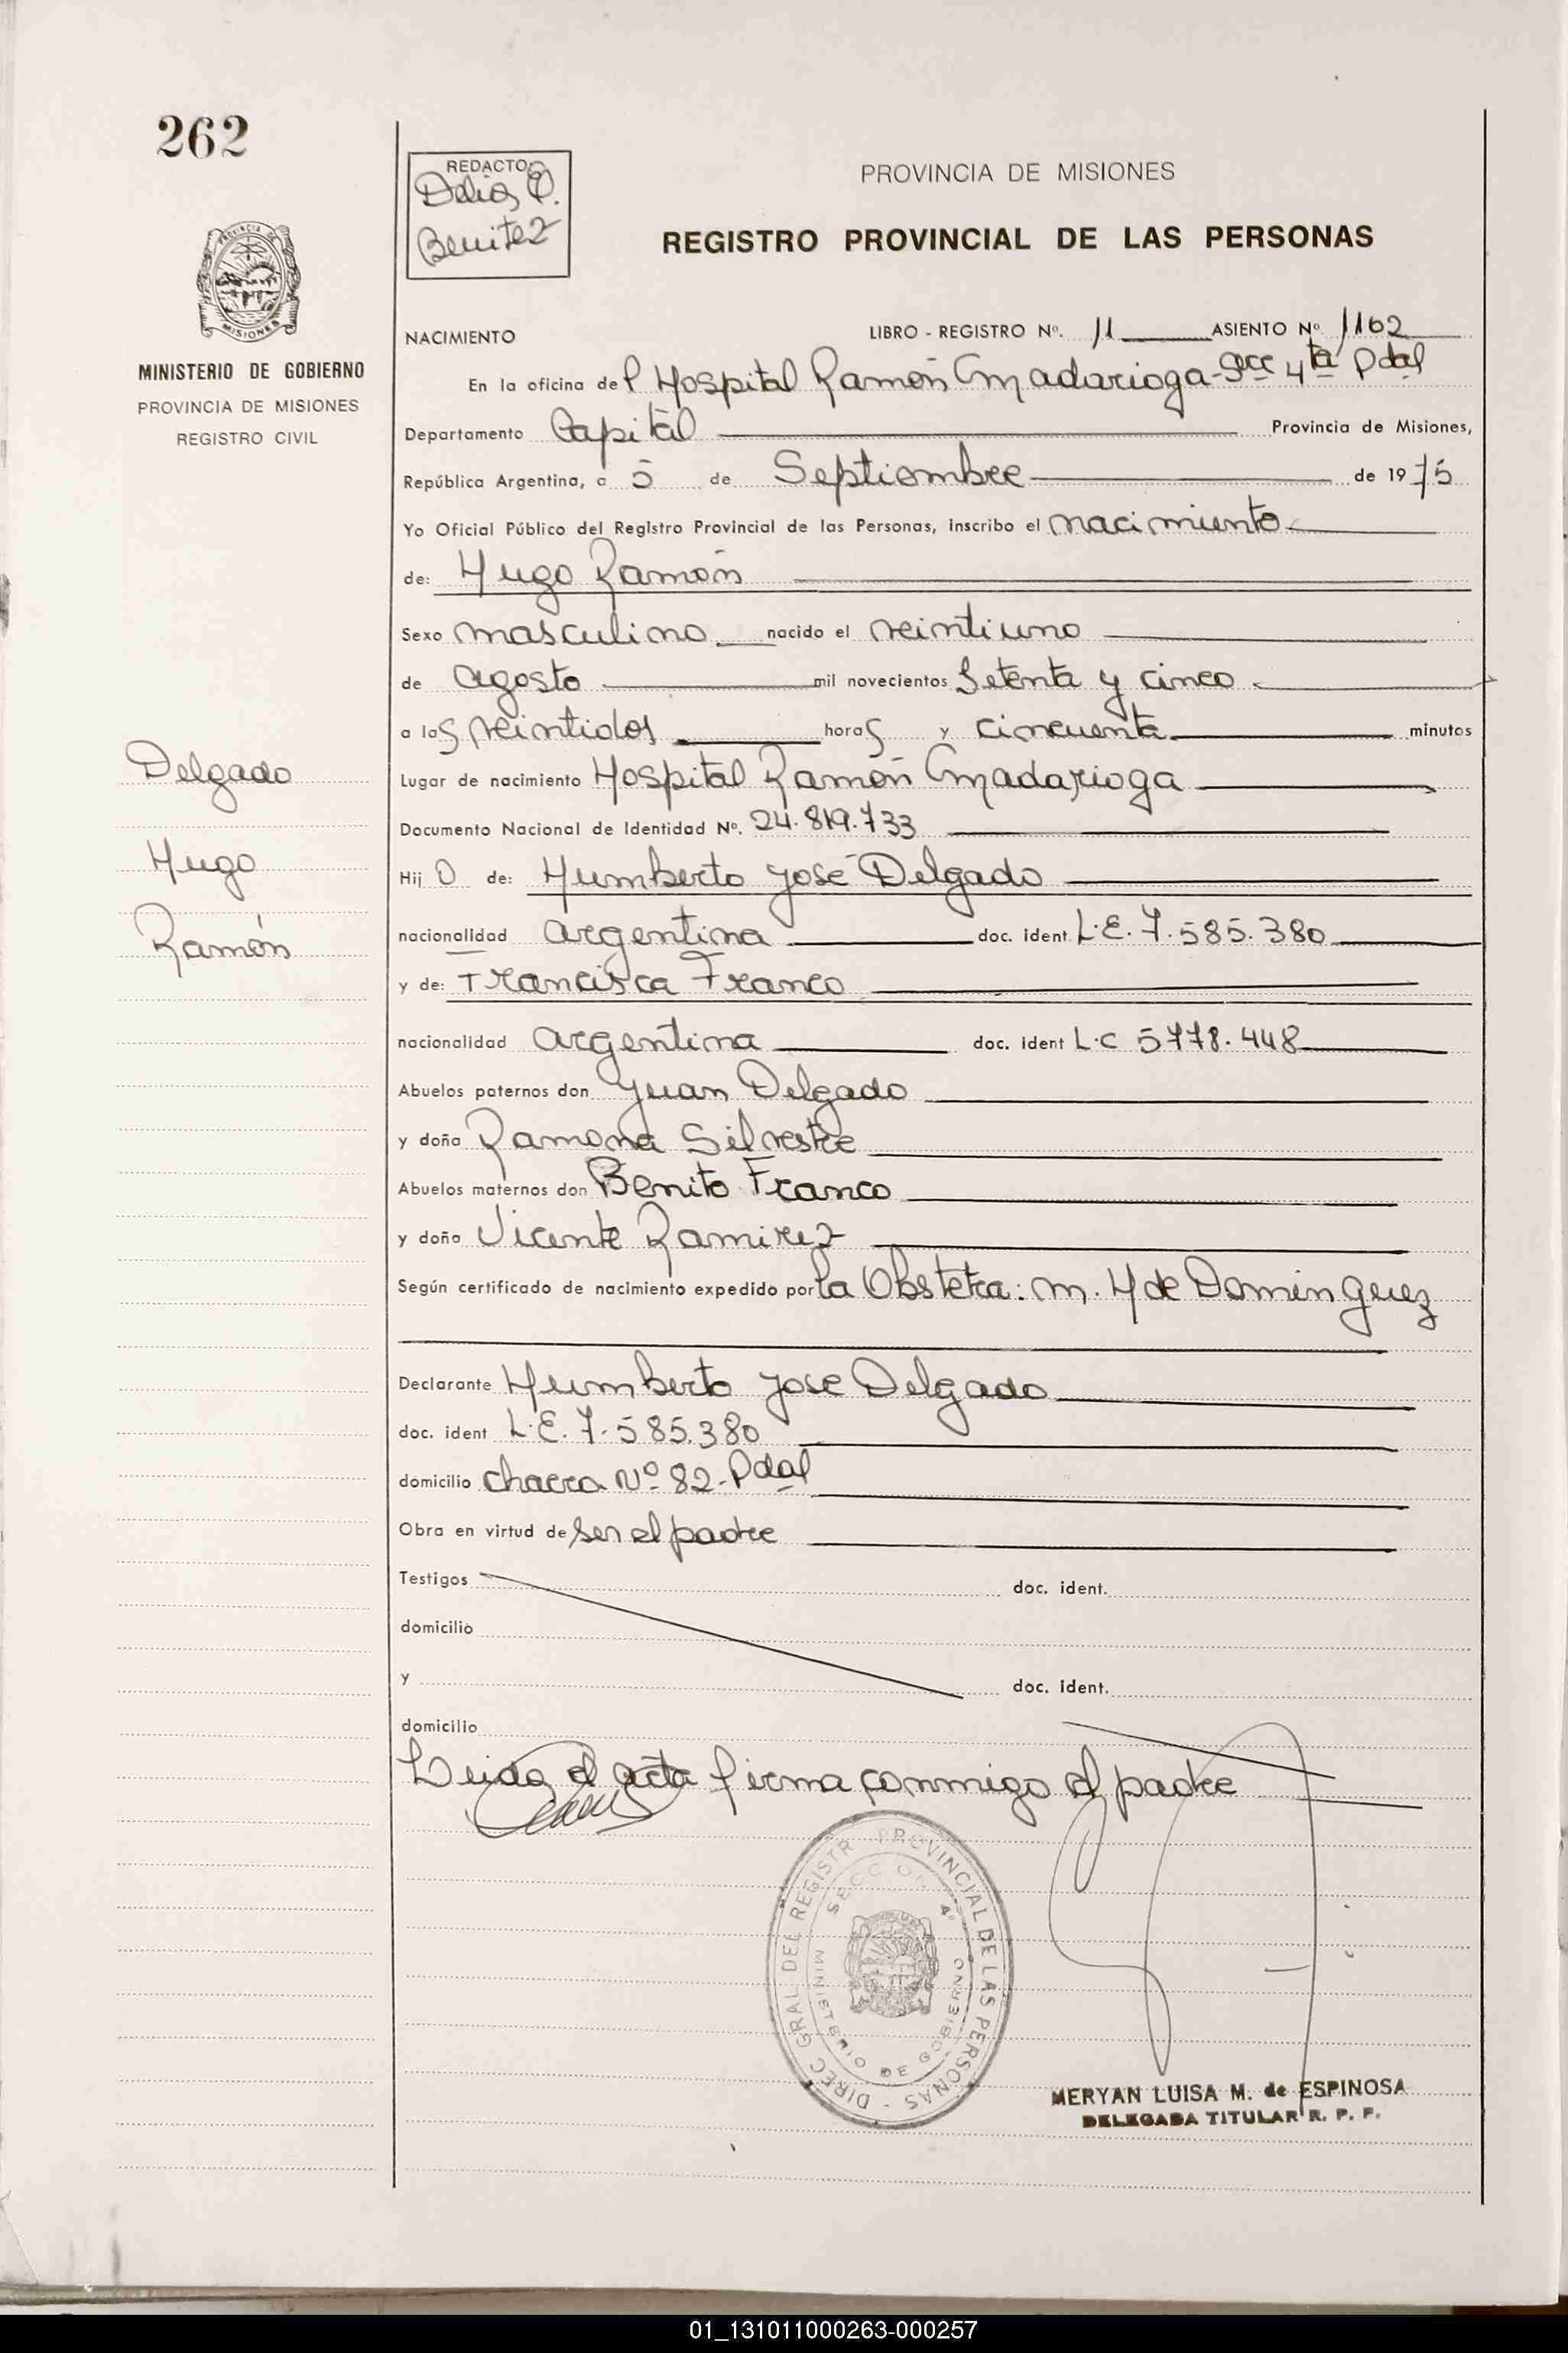 262
REDACTO:
Delia
Benitez
PROVINCIA DE MISIONES
REGISTRO PROVINCIAL DE LAS PERSONAS
MISIONES
MINISTERIO DE GOBIERNO
PROVINCIA DE MISIONES
REGISTRO CIVIL
NACIMIENTO LIBRO - REGISTRO Nº. 11 ASIENTO Nº 1162
En la oficina del Hospital Ramón Madarioga - Secc 4ta Pdal
Departamento Capital Provincia de Misiones,
República Argentina, a 5 de Septiembre de 1975
Yo Oficial Público del Registro Provincial de las Personas, inscribo el nacimiento
de: Hugo Ramón
Sexo masculino nacido el veintiuno
de agosto mil novecientos Setenta y cinco
a las veintidos horas y cincuenta minutos
Lugar de nacimiento Hospital Ramón Madarioga
Documento Nacional de Identidad Nº. 24.819.733
Hijo de: Humberto José Delgado
nacionalidad argentina doc. ident L.E. 7.585.380
y de: Francisca Franco
nacionalidad argentina doc. ident L.C 5778.448
Abuelos paternos don Juan Delgado
y doña Ramona Silvestre
Abuelos maternos don Benito Franco
y doña Vicente Ramirez
Según certificado de nacimiento expedido por la Obstetra: M. H de Dominguez
Declarante Humberto Jose Delgado
doc. ident L.E. 7.585.380
domicilio chacra Nº 82 - Pdal
Obra en virtud de ser el padre
Testigos doc. ident.
domicilio
y doc. ident.
domicilio
Leida el acta firma conmigo el padre
Delgado
Hugo
Ramón
DIREC GRAL DEL REGISTR PROVINCIAL DE LAS PERSONAS -
SECCION 4º
MINISTERIO DE GOBIERNO
MERYAN LUISA M. de ESPINOSA
DELEGADA TITULAR R. P. P.
01_131011000263-000257